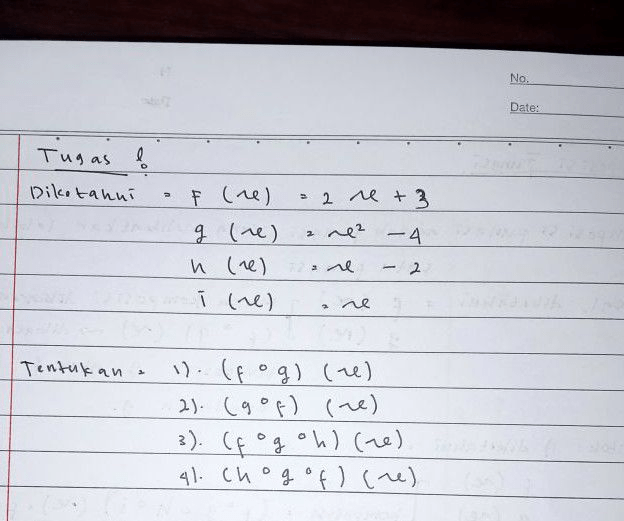 No.
Date:
Tugas !
Diketahui = f (x) = 2x + 3
g (x) = x² - 4
h (x) = x - 2
i (x) = x
Tentukan = 1). (f ∘ g) (x)
2). (g ∘ f) (x)
3). (f ∘ g ∘ h) (x)
4). (h ∘ g ∘ f) (x)